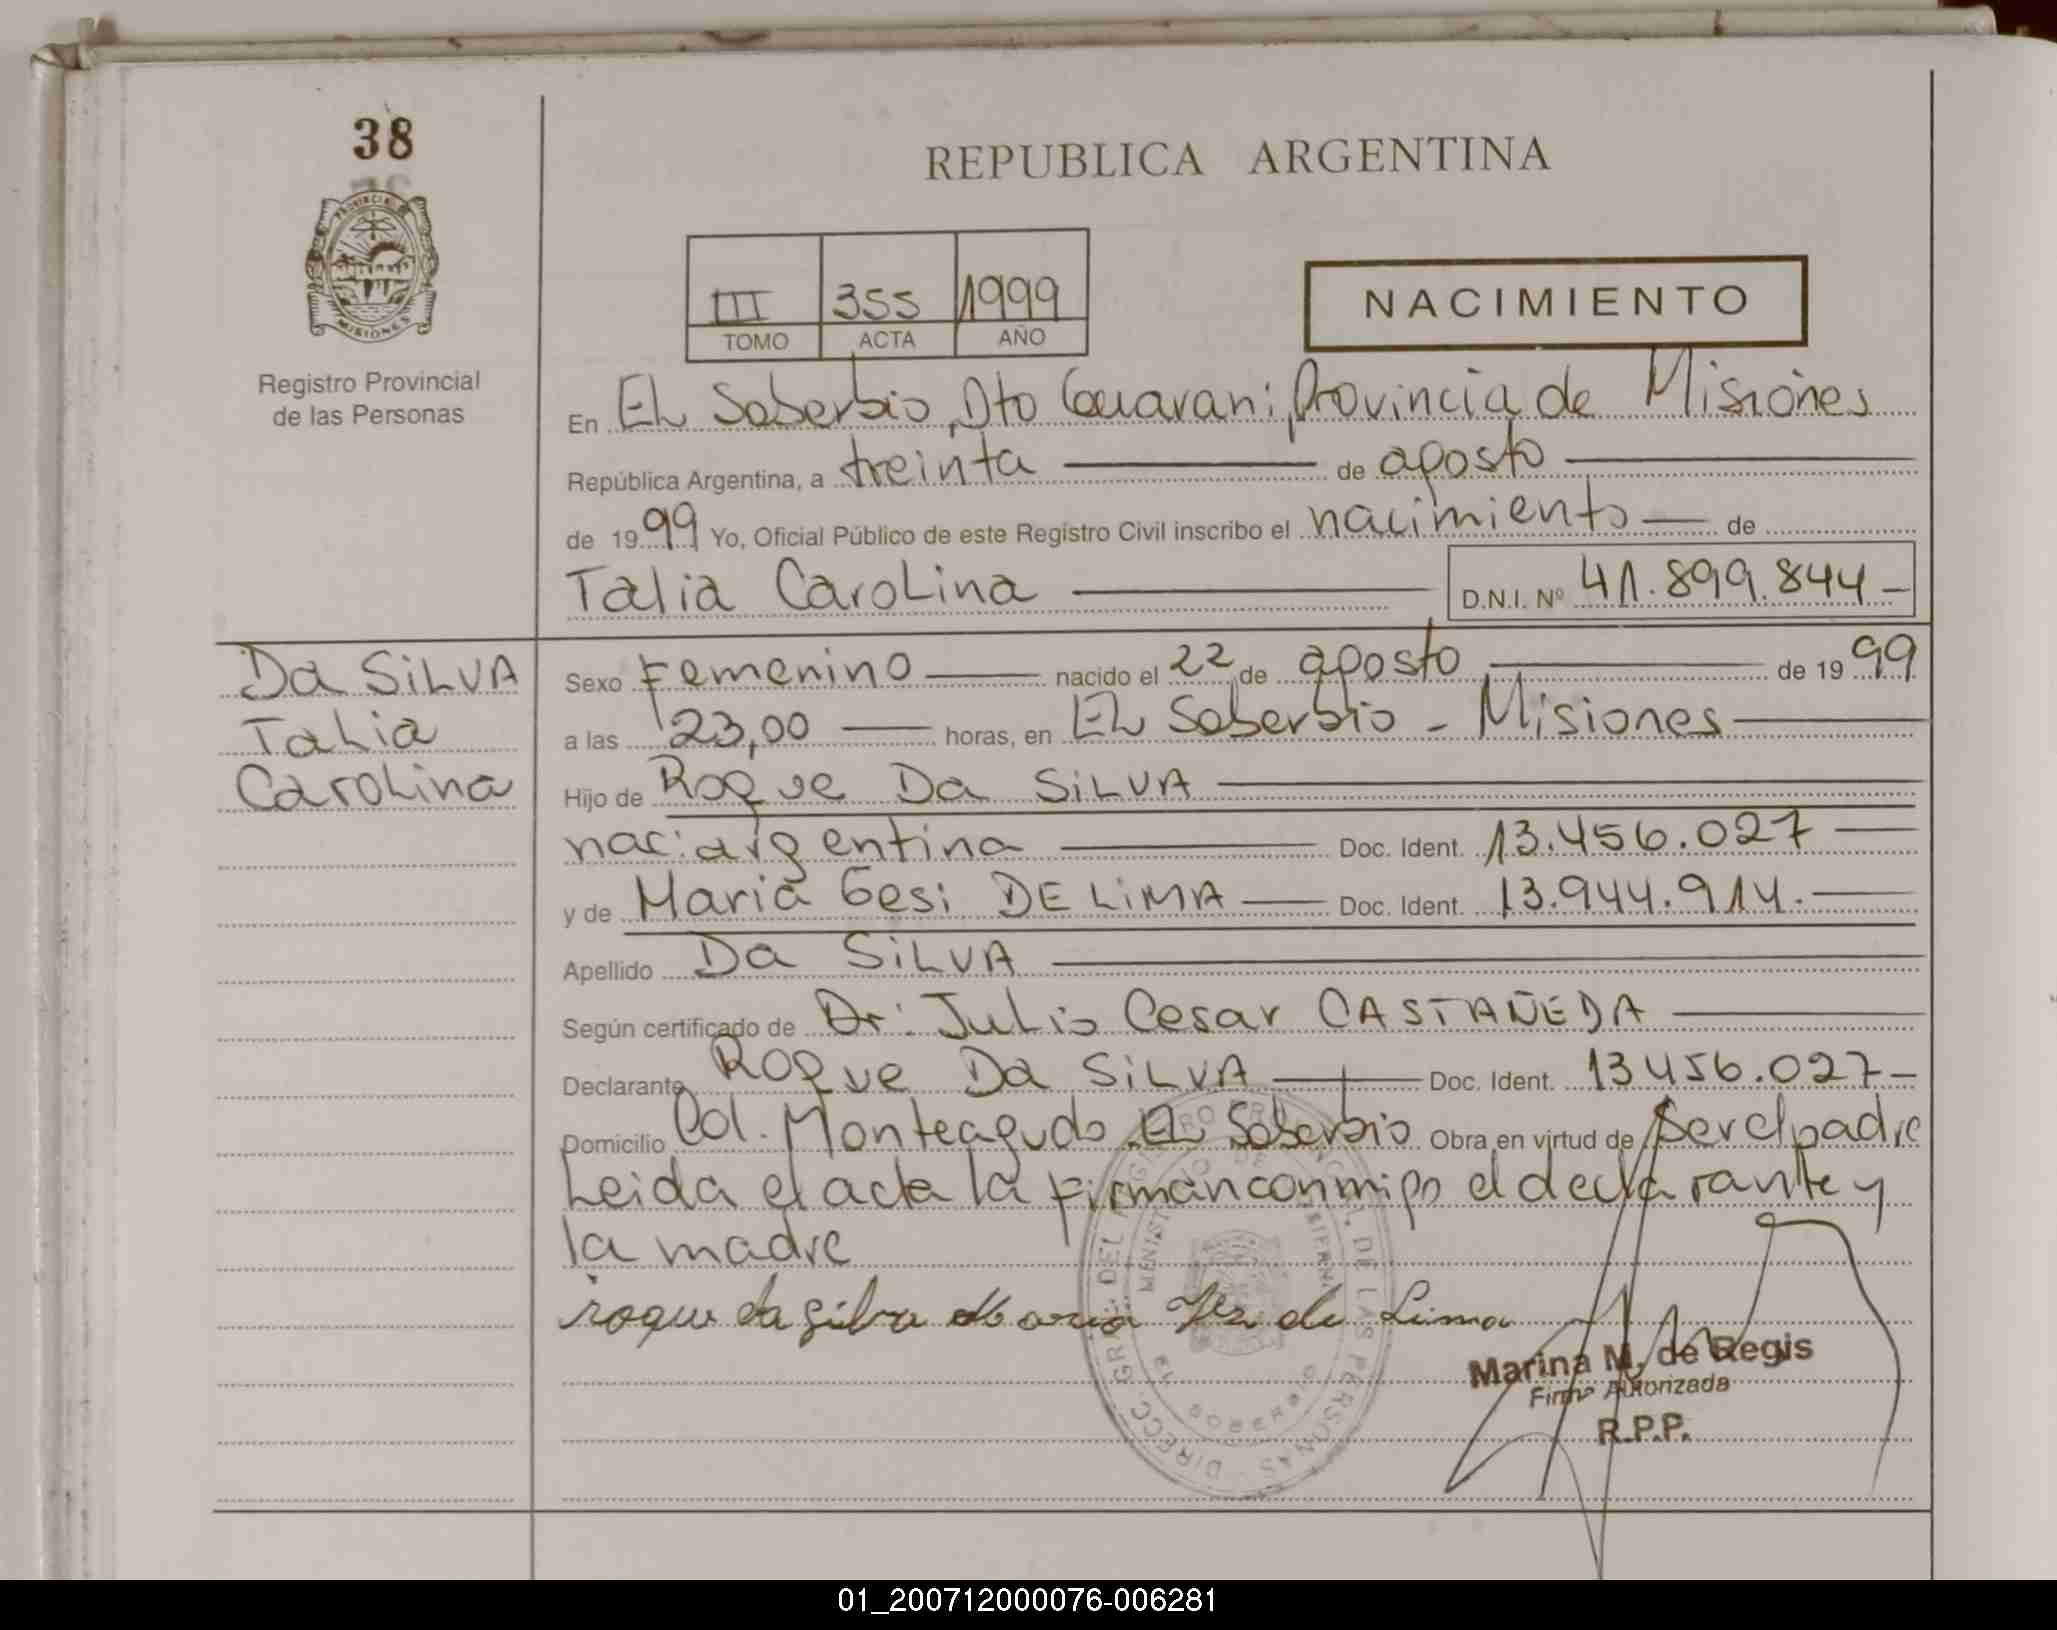 38
PROVINCIA
MISIONES
Registro Provincial
de las Personas
REPUBLICA ARGENTINA
III 355 1999
TOMO ACTA AÑO
NACIMIENTO
En EL Soberbio, Dto Guarani, Provincia de Misiones
República Argentina, a treinta de agosto
de 1999 Yo, Oficial Público de este Registro Civil inscribo el nacimiento de
Talia Carolina D.N.I. Nº 41.899.844
Da SiLVA
Talia
Carolina
Sexo Femenino nacido el 22 de agosto de 1999
a las 23,00 horas, en EL Soberbio - Misiones
Hijo de Roque Da SiLVA
nac: argentina Doc. Ident. 13.456.027
y de Maria Gesi DE LiMA Doc. Ident. 13.944.914.
Apellido Da SiLVA
Según certificado de Dr: Julio Cesar CASTAÑEDA
Declarante Roque Da SiLVA Doc. Ident. 13456.027
Domicilio Col. Monteagudo EL Soberbio Obra en virtud de ser el padre
Leida el acta la firman conmigo el declarante y
la madre
roque da silva Maria de Lima
DIRECC. GRAL. DEL REGISTRO PROVINCIAL DE LAS PERSONAS
EL SOBERBIO
Marina M. de Regis
Firma Autorizada
R.P.P.
01_200712000076-006281